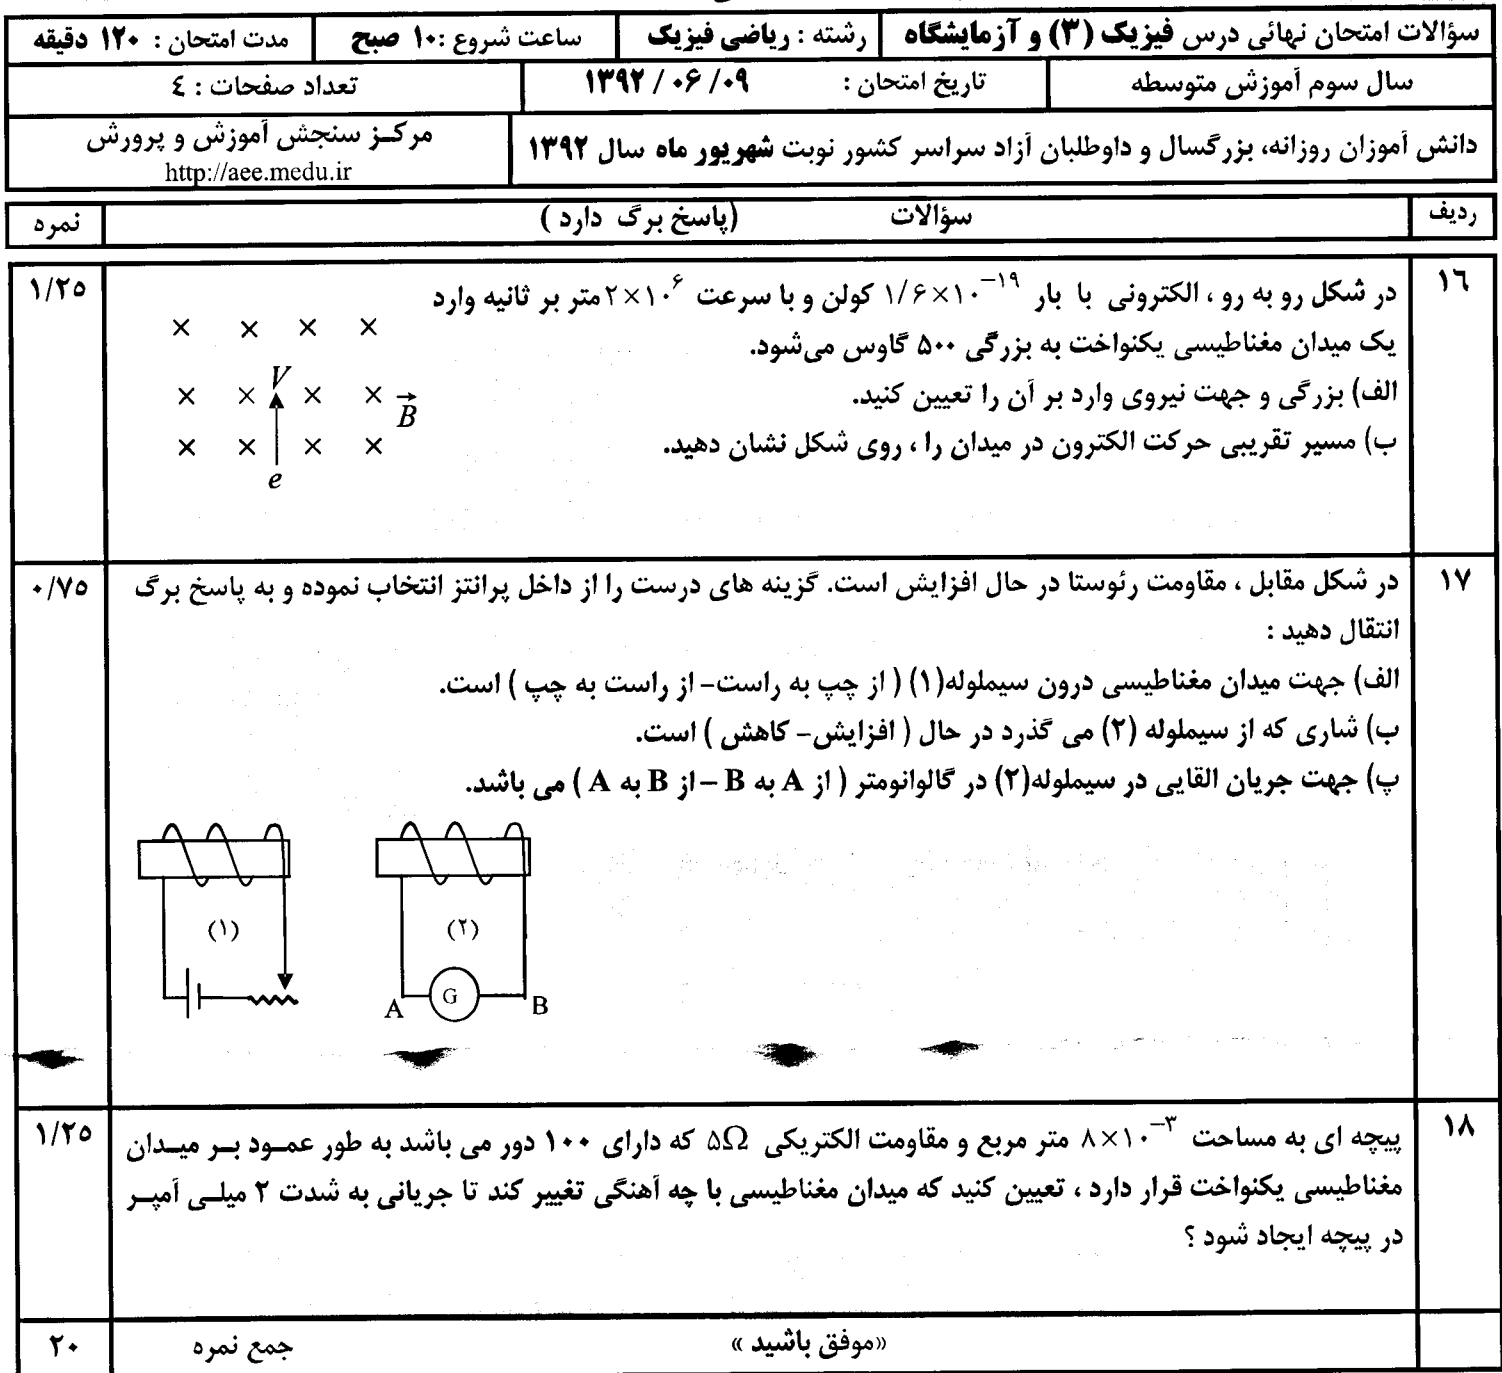 سؤالات امتحان نهائی درس فیزیک (۳) و آزمایشگاه رشته : ریاضی فیزیک ساعت شروع :۱۰ صبح مدت امتحان : ۱۲۰ دقیقه
سال سوم آموزش متوسطه تاریخ امتحان : ۱۳۹۲ / ۰۶ /۰۹ تعداد صفحات : ٤
دانش آموزان روزانه، بزرگسال و داوطلبان آزاد سراسر کشور نوبت شهریور ماه سال ۱۳۹۲ مرکـز سنجش آموزش و پرورش
http://aee.medu.ir
ردیف سؤالات (پاسخ برگ دارد ) نمره
١٦ در شکل رو به رو ، الکترونی با بار ۱/۶×۱۰⁻¹⁹ کولن و با سرعت ۲×۱۰⁶ متر بر ثانیه وارد ۱/۲٥
یک میدان مغناطیسی یکنواخت به بزرگی ۵۰۰ گاوس می‌شود.
الف) بزرگی و جهت نیروی وارد بر آن را تعیین کنید.
ب) مسیر تقریبی حرکت الکترون در میدان را ، روی شکل نشان دهید.
V
B
e
١٧ در شکل مقابل ، مقاومت رئوستا در حال افزایش است. گزینه های درست را از داخل پرانتز انتخاب نموده و به پاسخ برگ ۰/۷٥
انتقال دهید :
الف) جهت میدان مغناطیسی درون سیملوله(۱) ( از چپ به راست– از راست به چپ ) است.
ب) شاری که از سیملوله (۲) می گذرد در حال ( افزایش– کاهش ) است.
پ) جهت جریان القایی در سیملوله(۲) در گالوانومتر ( از A به B – از B به A ) می باشد.
(۱) (۲)
A G B
١٨ پیچه ای به مساحت ۸×۱۰⁻³ متر مربع و مقاومت الکتریکی ۵Ω که دارای ۱۰۰ دور می باشد به طور عمـود بـر میـدان ۱/۲٥
مغناطیسی یکنواخت قرار دارد ، تعیین کنید که میدان مغناطیسی با چه آهنگی تغییر کند تا جریانی به شدت ۲ میلـی آمپـر
در پیچه ایجاد شود ؟
«موفق باشید » جمع نمره ۲۰